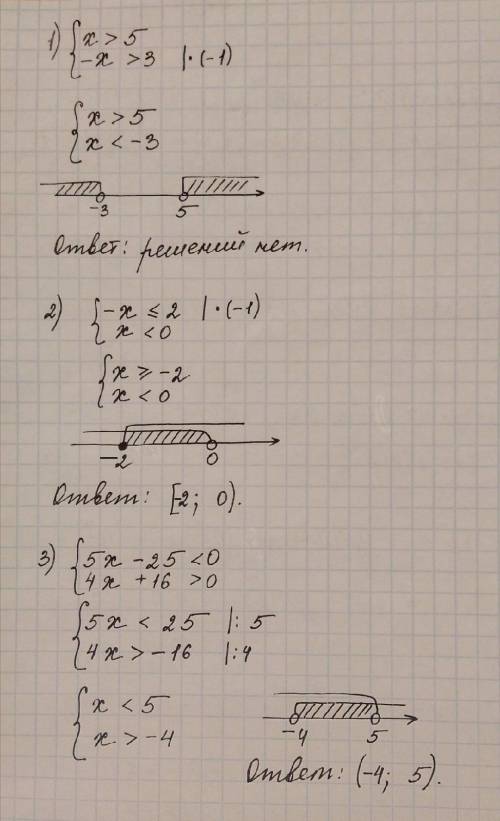 1) { x > 5
-x > 3 | · (-1)
{ x > 5
x < -3
-3 5
Ответ: решений нет.
2) { -x ≤ 2 | · (-1)
x < 0
{ x ≥ -2
x < 0
-2 0
Ответ: [-2; 0).
3) { 5x - 25 < 0
4x + 16 > 0
{ 5x < 25 |: 5
4x > -16 |: 4
{ x < 5
x > -4
-4 5
Ответ: (-4; 5).